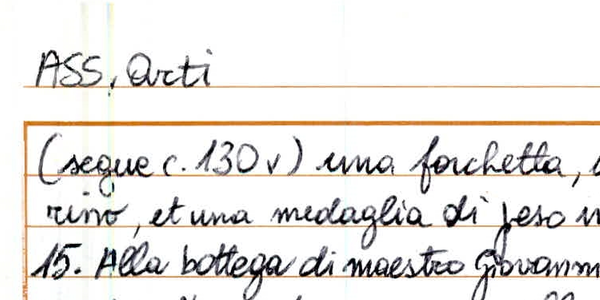 ASS, Arti
(segue c. 130v) una forchetta,
rino, et una medaglia di peso in
15. Alla bottega di maestro Giovann